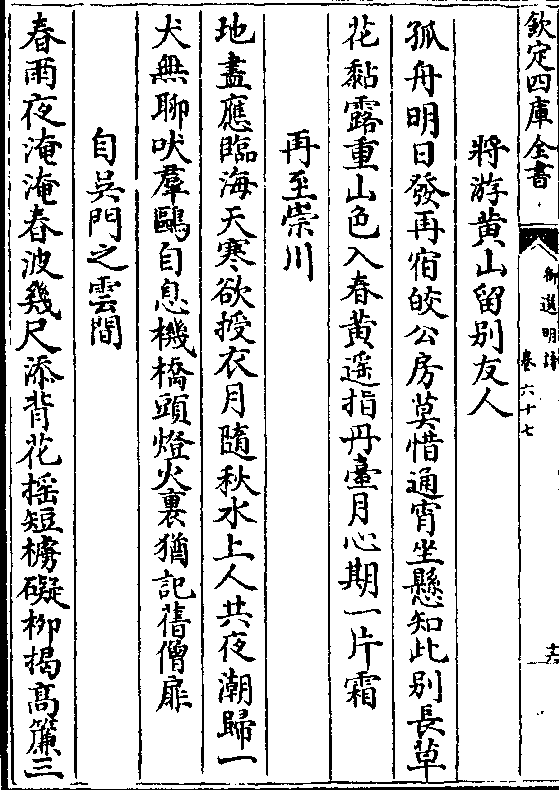 欽定四庫全書
御選明詩
卷六十七
十六
將游黄山留别友人
孤舟明日發再宿皎公房莫惜通宵坐懸知此别長草
花黏露重山色入春黄遥指丹臺月心期一片霜
再至崇川
地盡應臨海天寒欲授衣月隨秋水上人共夜潮歸一
犬無聊吠羣鷗自息機橋頭燈火裏猶記舊僧扉
自吳門之雲間
春雨夜淹淹春波幾尺添背花摇短櫓礙柳揭高簾三